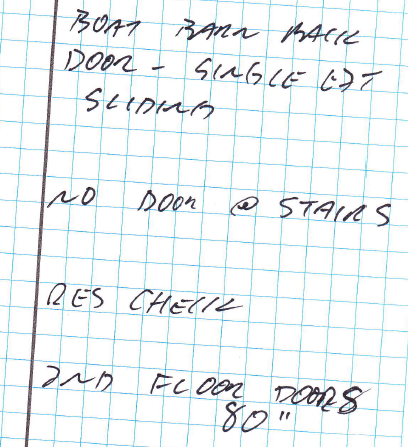 BOAT BARN BACK
DOOR - SINGLE EXT
SLIDING
NO DOOR @ STAIRS
RES CHECK
2ND FLOOR DOORS
80"